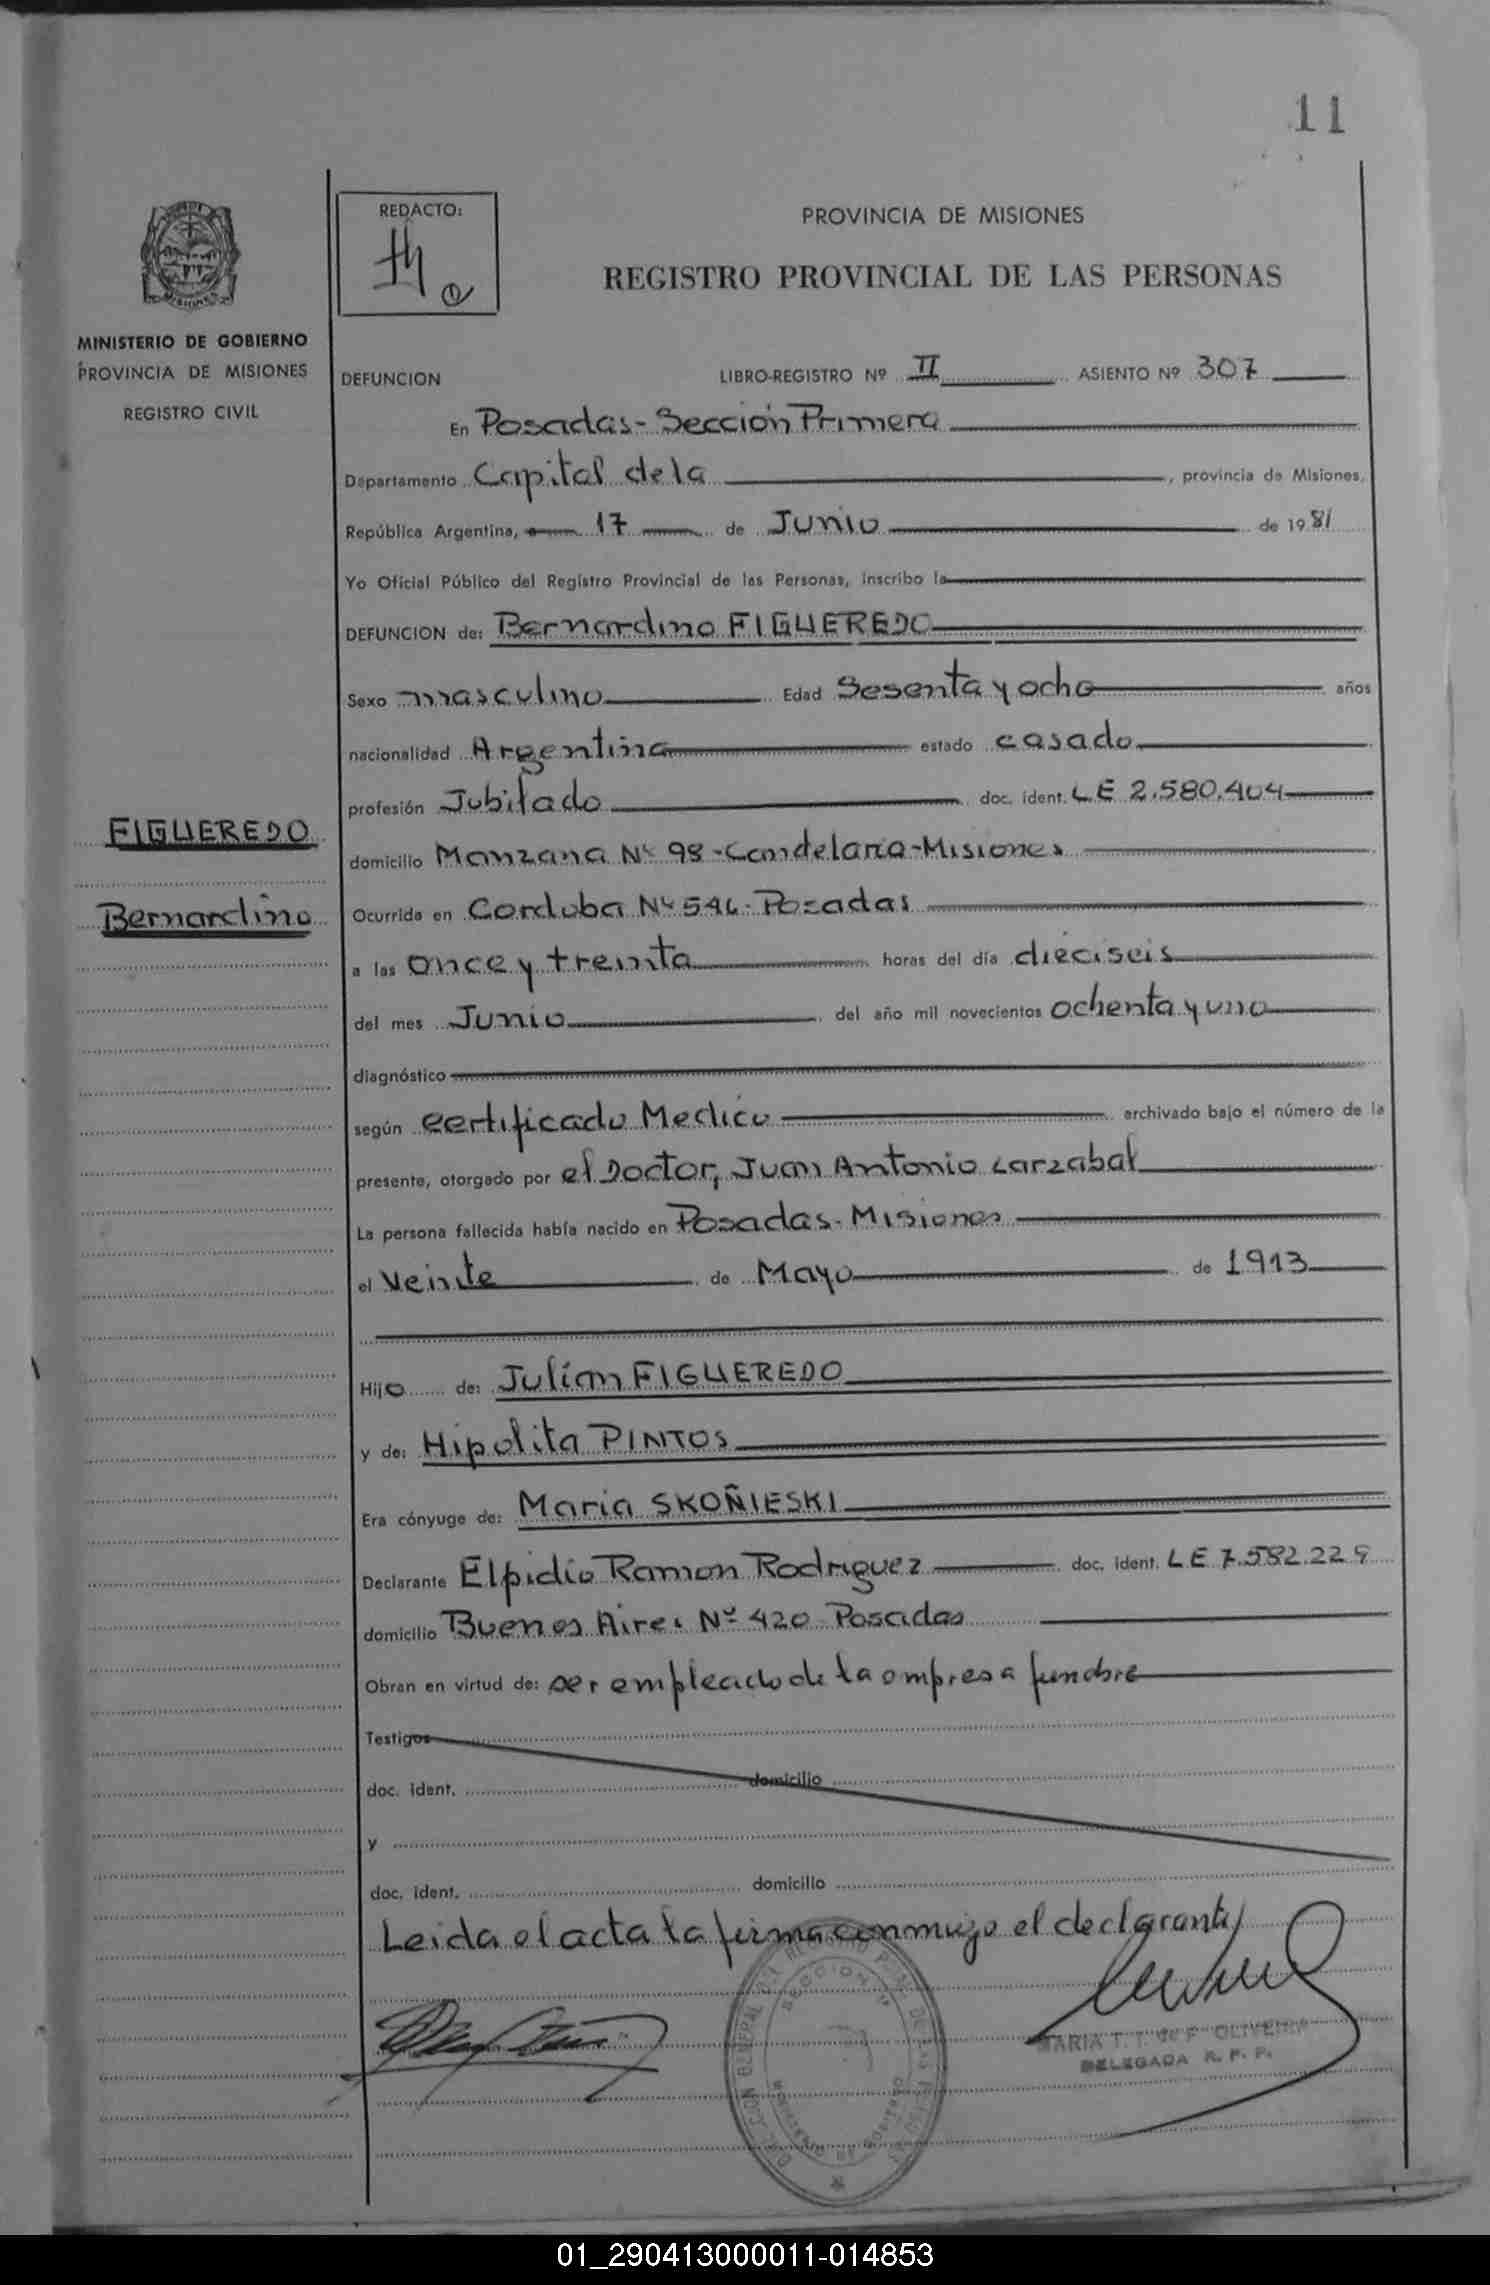 11
REDACTO:
PROVINCIA DE MISIONES
REGISTRO PROVINCIAL DE LAS PERSONAS
MISIONES
MINISTERIO DE GOBIERNO
PROVINCIA DE MISIONES
REGISTRO CIVIL
DEFUNCION LIBRO-REGISTRO Nº II ASIENTO Nº 307
En Posadas - Sección Primera
Departamento Capital de la , provincia de Misiones,
República Argentina, 17 de Junio de 1981
Yo Oficial Público del Registro Provincial de las Personas, inscribo la
DEFUNCION de: Bernardino FIGUEREDO
Sexo masculino Edad Sesenta y ocho años
nacionalidad Argentina estado casado
profesión Jubilado doc. ident. LE 2.580.404
FIGUEREDO
Bernardino
domicilio Manzana Nº 98 - Candelaria - Misiones
Ocurrida en Cordoba Nº 546 - Posadas
a las once y treinta horas del día dieciseis
del mes Junio del año mil novecientos ochenta y uno
diagnóstico
según certificado Medico archivado bajo el número de la
presente, otorgado por el Doctor, Juan Antonio Larzabal
La persona fallecida había nacido en Posadas - Misiones
el veinte de Mayo de 1913
Hijo de: Julian FIGUEREDO
y de: Hipolita PINTOS
Era cónyuge de: Maria SKOÑIESKI
Declarante Elpidio Ramon Rodriguez doc. ident. LE 7.582.229
domicilio Buenos Aires Nº 420 Posadas
Obran en virtud de: ser empleado de la empresa funebre
Testigos
doc. ident. domicilio
y
doc. ident. domicilio
Leida el acta la firma conmigo el declarante
SECCION 1ª
MARIA T. T. de F. OLIVEIRA
DELEGADA R. P. P.
01_290413000011-014853